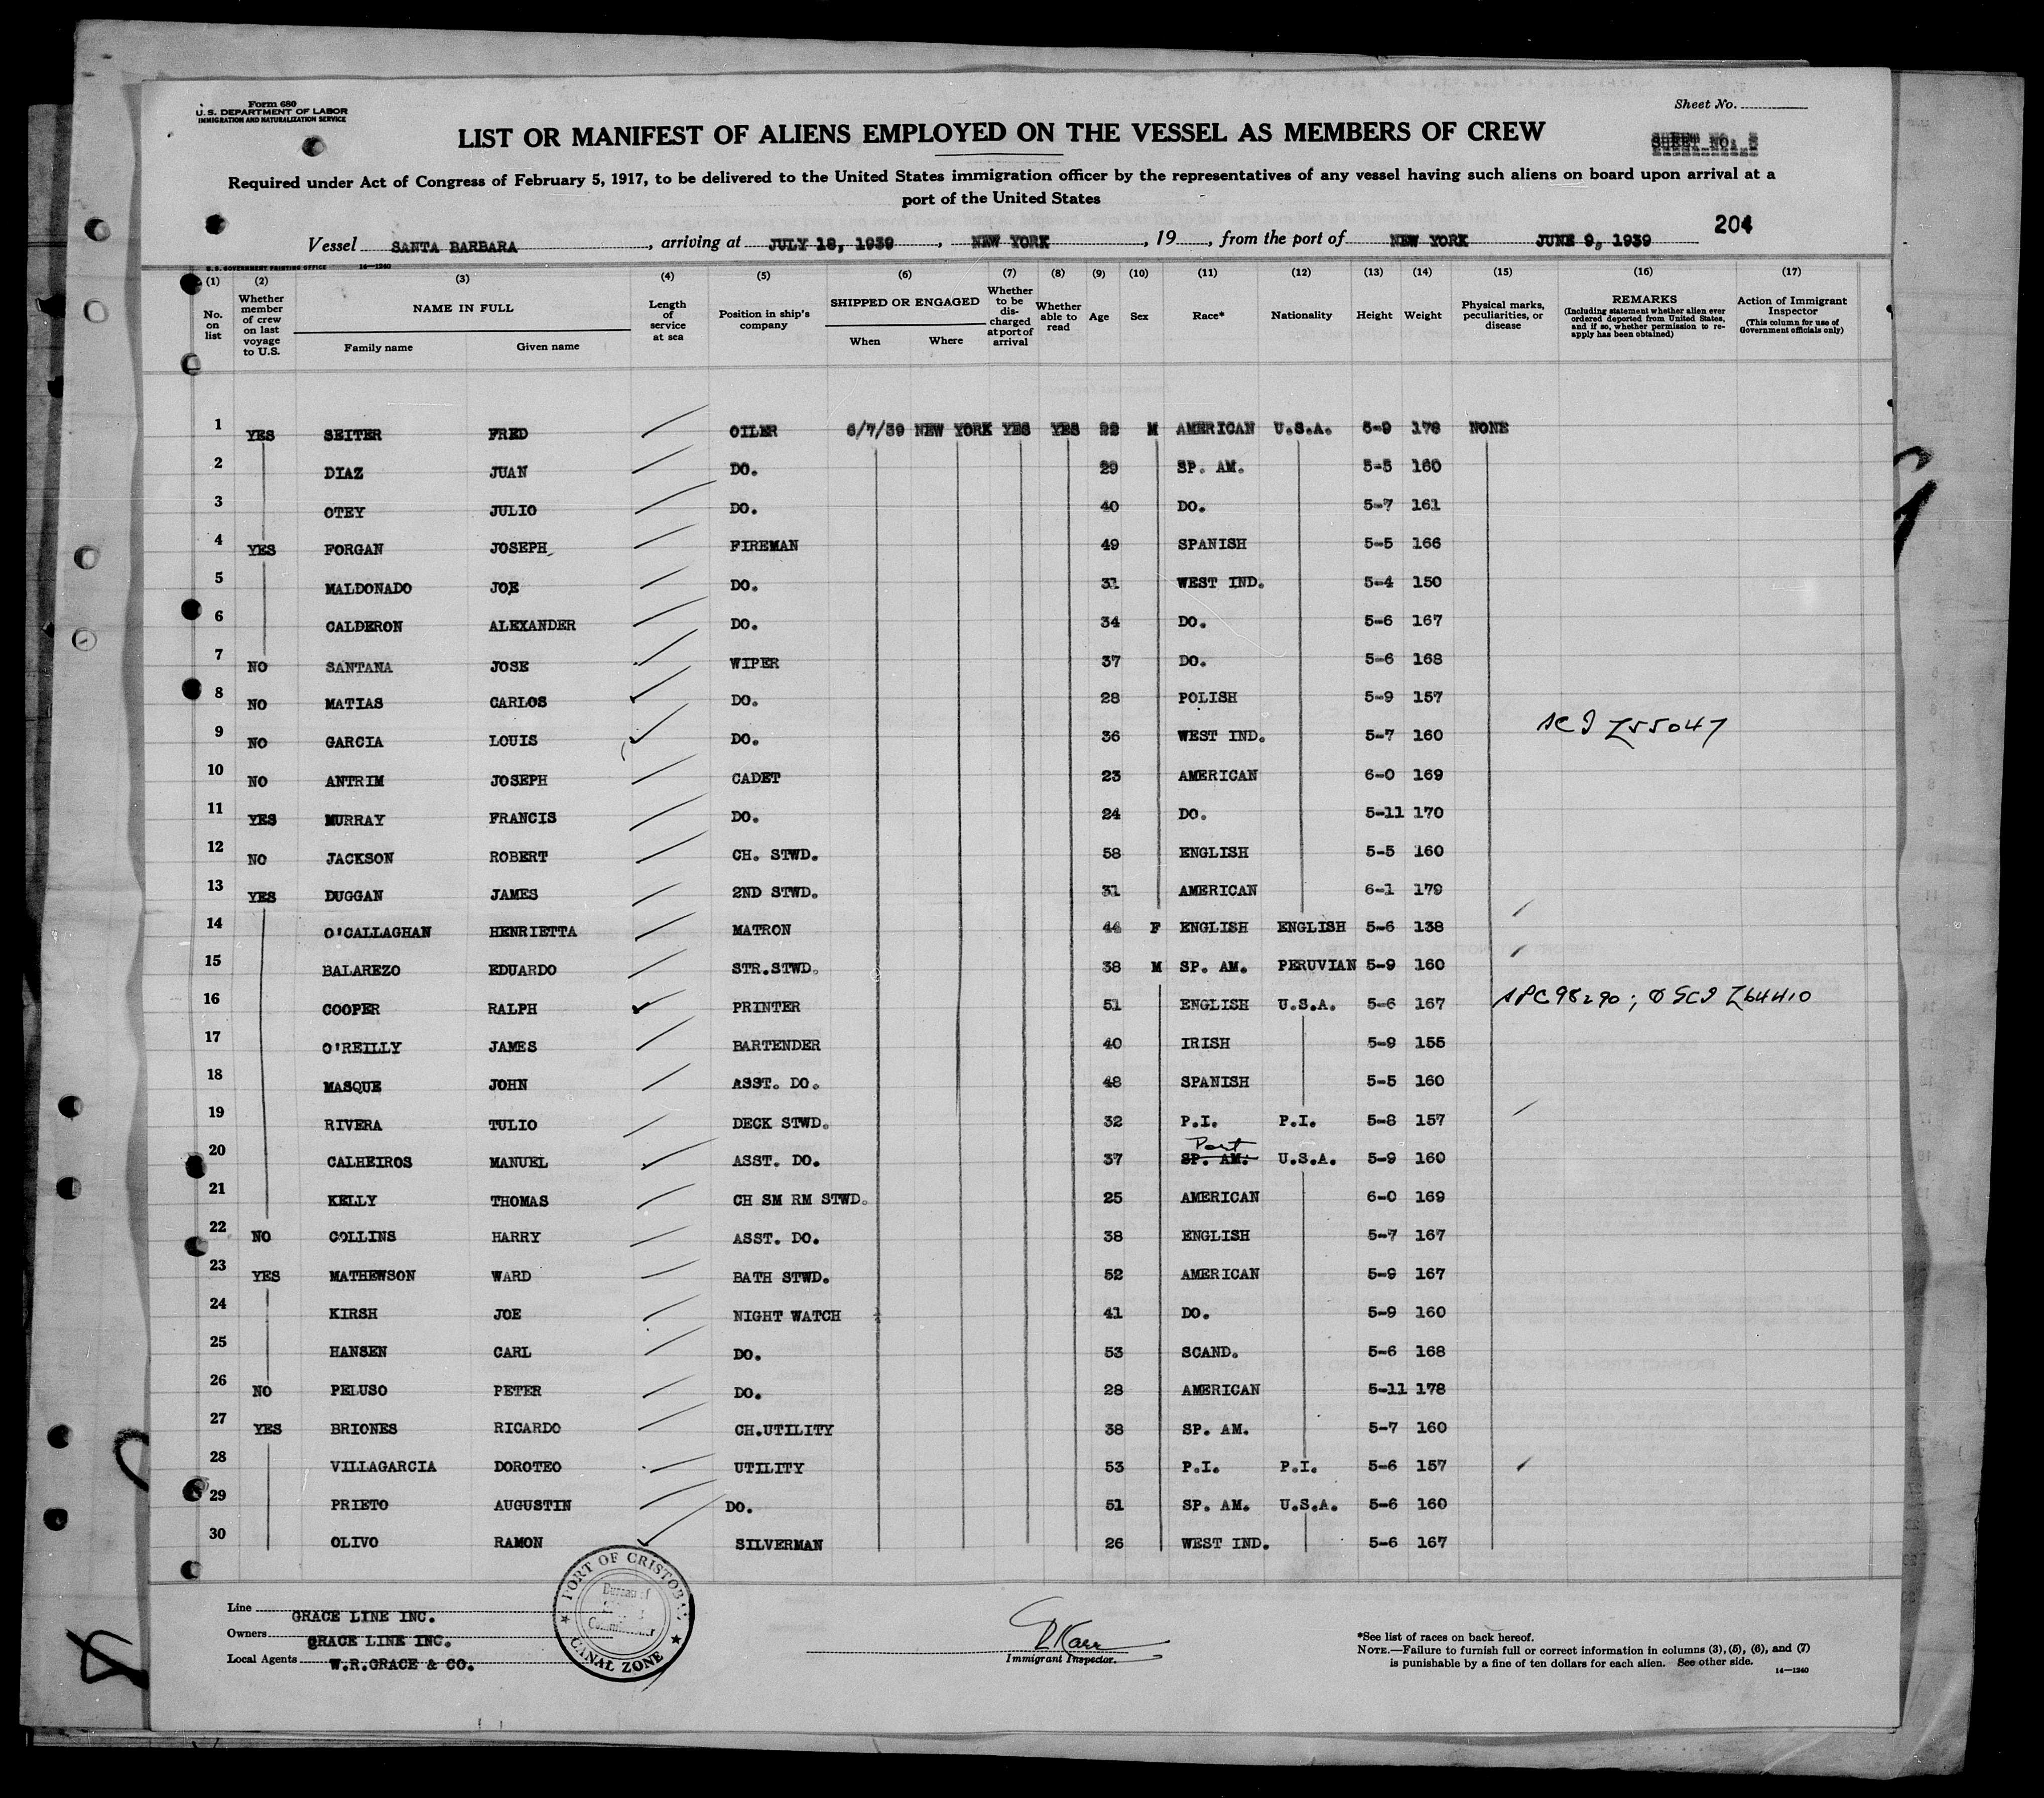 Form 680
U.S. DEPARTMENT OF LABOR
IMMIGRATION AND NATURALIZATION SERVICE
Sheet No.
LIST OR MANIFEST OF ALIENS EMPLOYED ON THE VESSEL AS MEMBERS OF CREW
SHEET NO.
Required under Act of Congress of February 5, 1917, to be delivered to the United States immigration officer by the representatives of any vessel having such aliens on board upon arrival at a
port of the United States
204
Vessel SANTA BARBARA , arriving at JULY 18, 1939 , NEW YORK , 19 , from the port of NEW YORK JUNE 9, 1939
U.S. GOVERNMENT PRINTING OFFICE 14—1240
(1) (2) (3) (4) (5) (6) (7) (8) (9) (10) (11) (12) (13) (14) (15) (16) (17)
No. on list
Whether member of crew on last voyage to U.S.
NAME IN FULL
Family name Given name
Length of service at sea
Position in ship's company
SHIPPED OR ENGAGED
When Where
Whether to be discharged at port of arrival
Whether able to read
Age
Sex
Race*
Nationality
Height
Weight
Physical marks, peculiarities, or disease
REMARKS
(Including statement whether alien ever ordered deported from United States, and if so, whether permission to reapply has been obtained)
Action of Immigrant Inspector
(This column for use of Government officials only)
1 YES SEITER FRED OILER 6/7/39 NEW YORK YES YES 22 M AMERICAN U.S.A. 5-9 178 NONE
2 DIAZ JUAN DO. 29 SP. AM. 5-5 160
3 OTEY JULIO DO. 40 DO. 5-7 161
4 YES FORGAN JOSEPH FIREMAN 49 SPANISH 5-5 166
5 MALDONADO JOE DO. 31 WEST IND. 5-4 150
6 CALDERON ALEXANDER DO. 34 DO. 5-6 167
7 NO SANTANA JOSE WIPER 37 DO. 5-6 168
8 NO MATIAS CARLOS DO. 28 POLISH 5-9 157
9 NO GARCIA LOUIS DO. 36 WEST IND. 5-7 160 Z55047
10 NO ANTRIM JOSEPH CADET 23 AMERICAN 6-0 169
11 YES MURRAY FRANCIS DO. 24 DO. 5-11 170
12 NO JACKSON ROBERT CH. STWD. 58 ENGLISH 5-5 160
13 YES DUGGAN JAMES 2ND STWD. 31 AMERICAN 6-1 179
14 O'CALLAGHAN HENRIETTA MATRON 44 F ENGLISH ENGLISH 5-6 138
15 BALAREZO EDUARDO STR.STWD. 38 M SP. AM. PERUVIAN 5-9 160
16 COOPER RALPH PRINTER 51 ENGLISH U.S.A. 5-6 167 Z64410
17 O'REILLY JAMES BARTENDER 40 IRISH 5-9 155
18 MASQUE JOHN ASST. DO. 48 SPANISH 5-5 160
19 RIVERA TULIO DECK STWD. 32 P.I. P.I. 5-8 157
20 CALHEIROS MANUEL ASST. DO. 37 SP. AM. Port U.S.A. 5-9 160
21 KELLY THOMAS CH SM RM STWD. 25 AMERICAN 6-0 169
22 NO COLLINS HARRY ASST. DO. 38 ENGLISH 5-7 167
23 YES MATHEWSON WARD BATH STWD. 52 AMERICAN 5-9 167
24 KIRSH JOE NIGHT WATCH 41 DO. 5-9 160
25 HANSEN CARL DO. 53 SCAND. 5-6 168
26 NO PELUSO PETER DO. 28 AMERICAN 5-11 178
27 YES BRIONES RICARDO CH.UTILITY 38 SP. AM. 5-7 160
28 VILLAGARCIA DOROTEO UTILITY 53 P.I. P.I. 5-6 157
29 PRIETO AUGUSTIN DO. 51 SP. AM. U.S.A. 5-6 160
30 OLIVO RAMON SILVERMAN 26 WEST IND. 5-6 167
Line GRACE LINE INC.
Owners GRACE LINE INC.
Local Agents W.R.GRACE & CO.
PORT OF CRISTOBAL
CANAL ZONE
Immigrant Inspector.
*See list of races on back hereof.
NOTE.—Failure to furnish full or correct information in columns (3), (5), (6), and (7)
is punishable by a fine of ten dollars for each alien. See other side.
14—1240